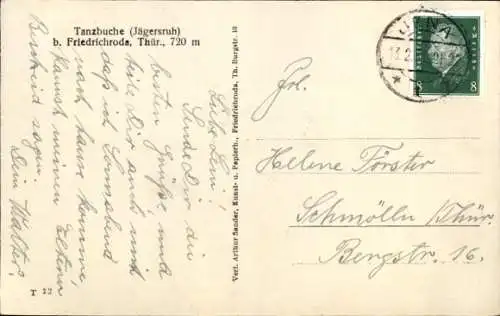 Tanzbuche (Jägersruh)
b. Friedrichroda, Thür., 720 m
Liebe Leni!
Sende Dir die
besten Grüße und
teile Dir auch mit
daß ich Sonnabend
nach Hause komme,
kannst meinen Eltern
Bescheid sagen.
Dein Walter.
T 22
Verl. Arthur Sander, Kunst- u. Papierh., Friedrichroda, Th. Burgstr. 10
JENA
8 8
Frl.
Helene Förster
Schmölln/Thür.
Bergstr. 16.